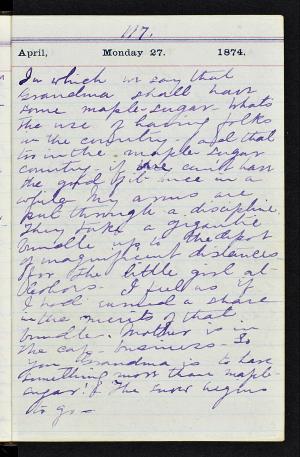 117.
April, Monday 27. 1874.
In which we say that
Grandma shall have
some maple-sugar - what's
the use of having folks
in the country - and that
too in the maple sugar
country if we can't have
the good of it once in a
while My arms are
put through a discipline.
They take a gigantic
bundle up to the depot
of magnificent distances
for the little girl at
I feel as if
I had earned a share
in the merits of that
bundle. Mother is in
the business - So
Grandma is to have
something more than maple-
sugar! The snow begins
to go -